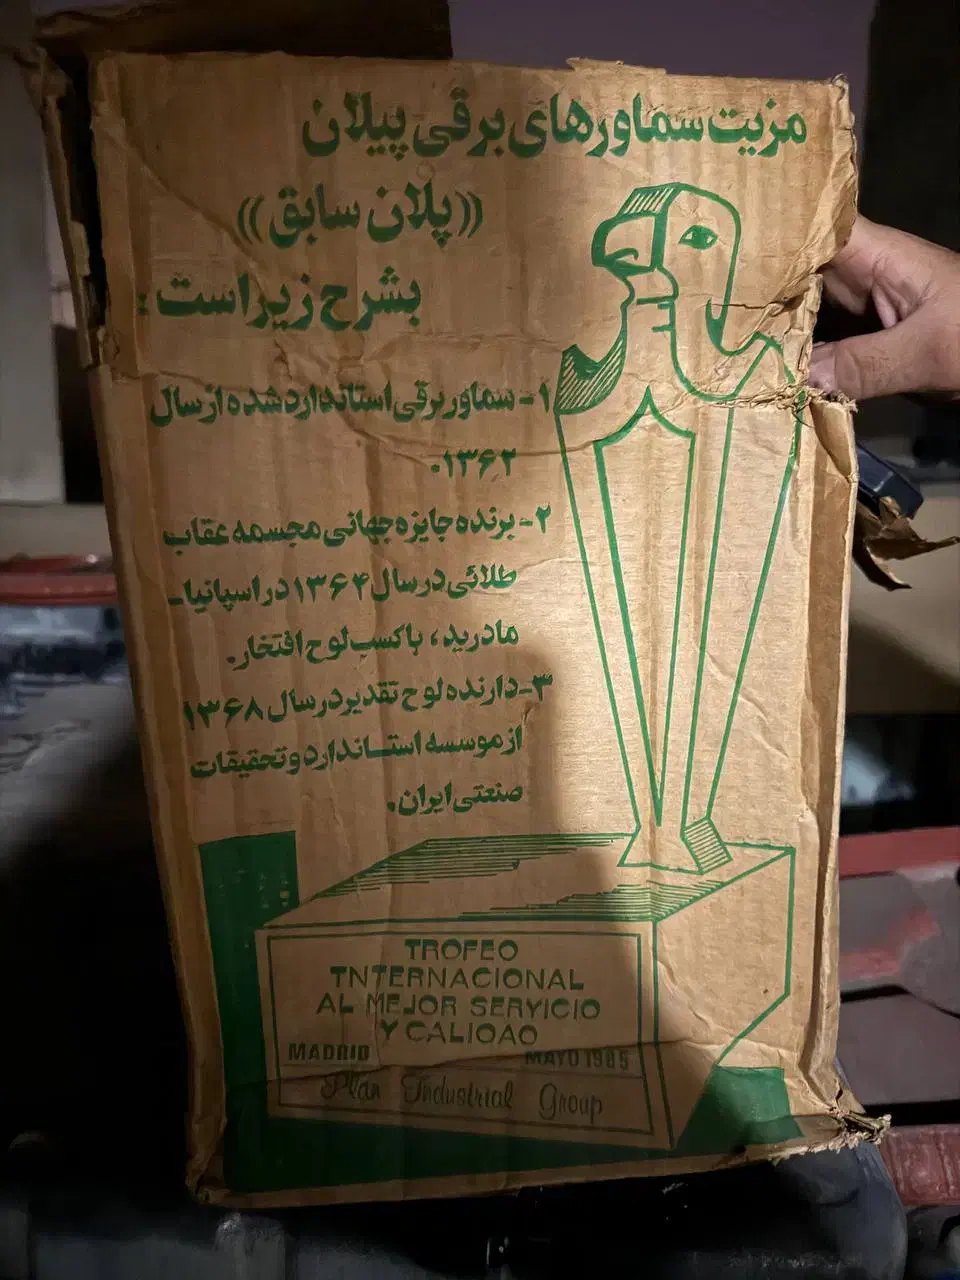 مزیت سماورهای برقی پیلان
((پلان سابق))
بشرح زیر است:
۱- سماور برقی استاندارد شده از سال
۱۳۶۲.
۲- برنده جایزه جهانی مجسمه عقاب
طلائی در سال ۱۳۶۴ در اسپانیا-
مادرید، با کسب لوح افتخار.
۳- دارنده لوح تقدیر در سال ۱۳۶۸
از موسسه استاندارد و تحقیقات
صنعتی ایران.
TROFEO
TNTERNACIONAL
AL MEJOR SERYICIO
Y CALIOAO
MADRID MAYO 1985
Plan Industrial Group